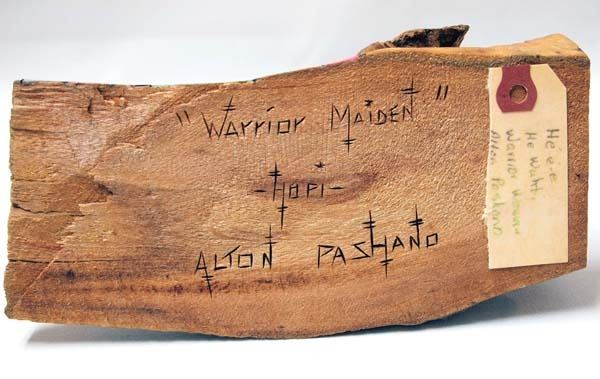 "Warrior Maiden"
-Hopi-
Alton Pashano
He'e'e
He Wuhti
Warrior Woman
Alton Pashano